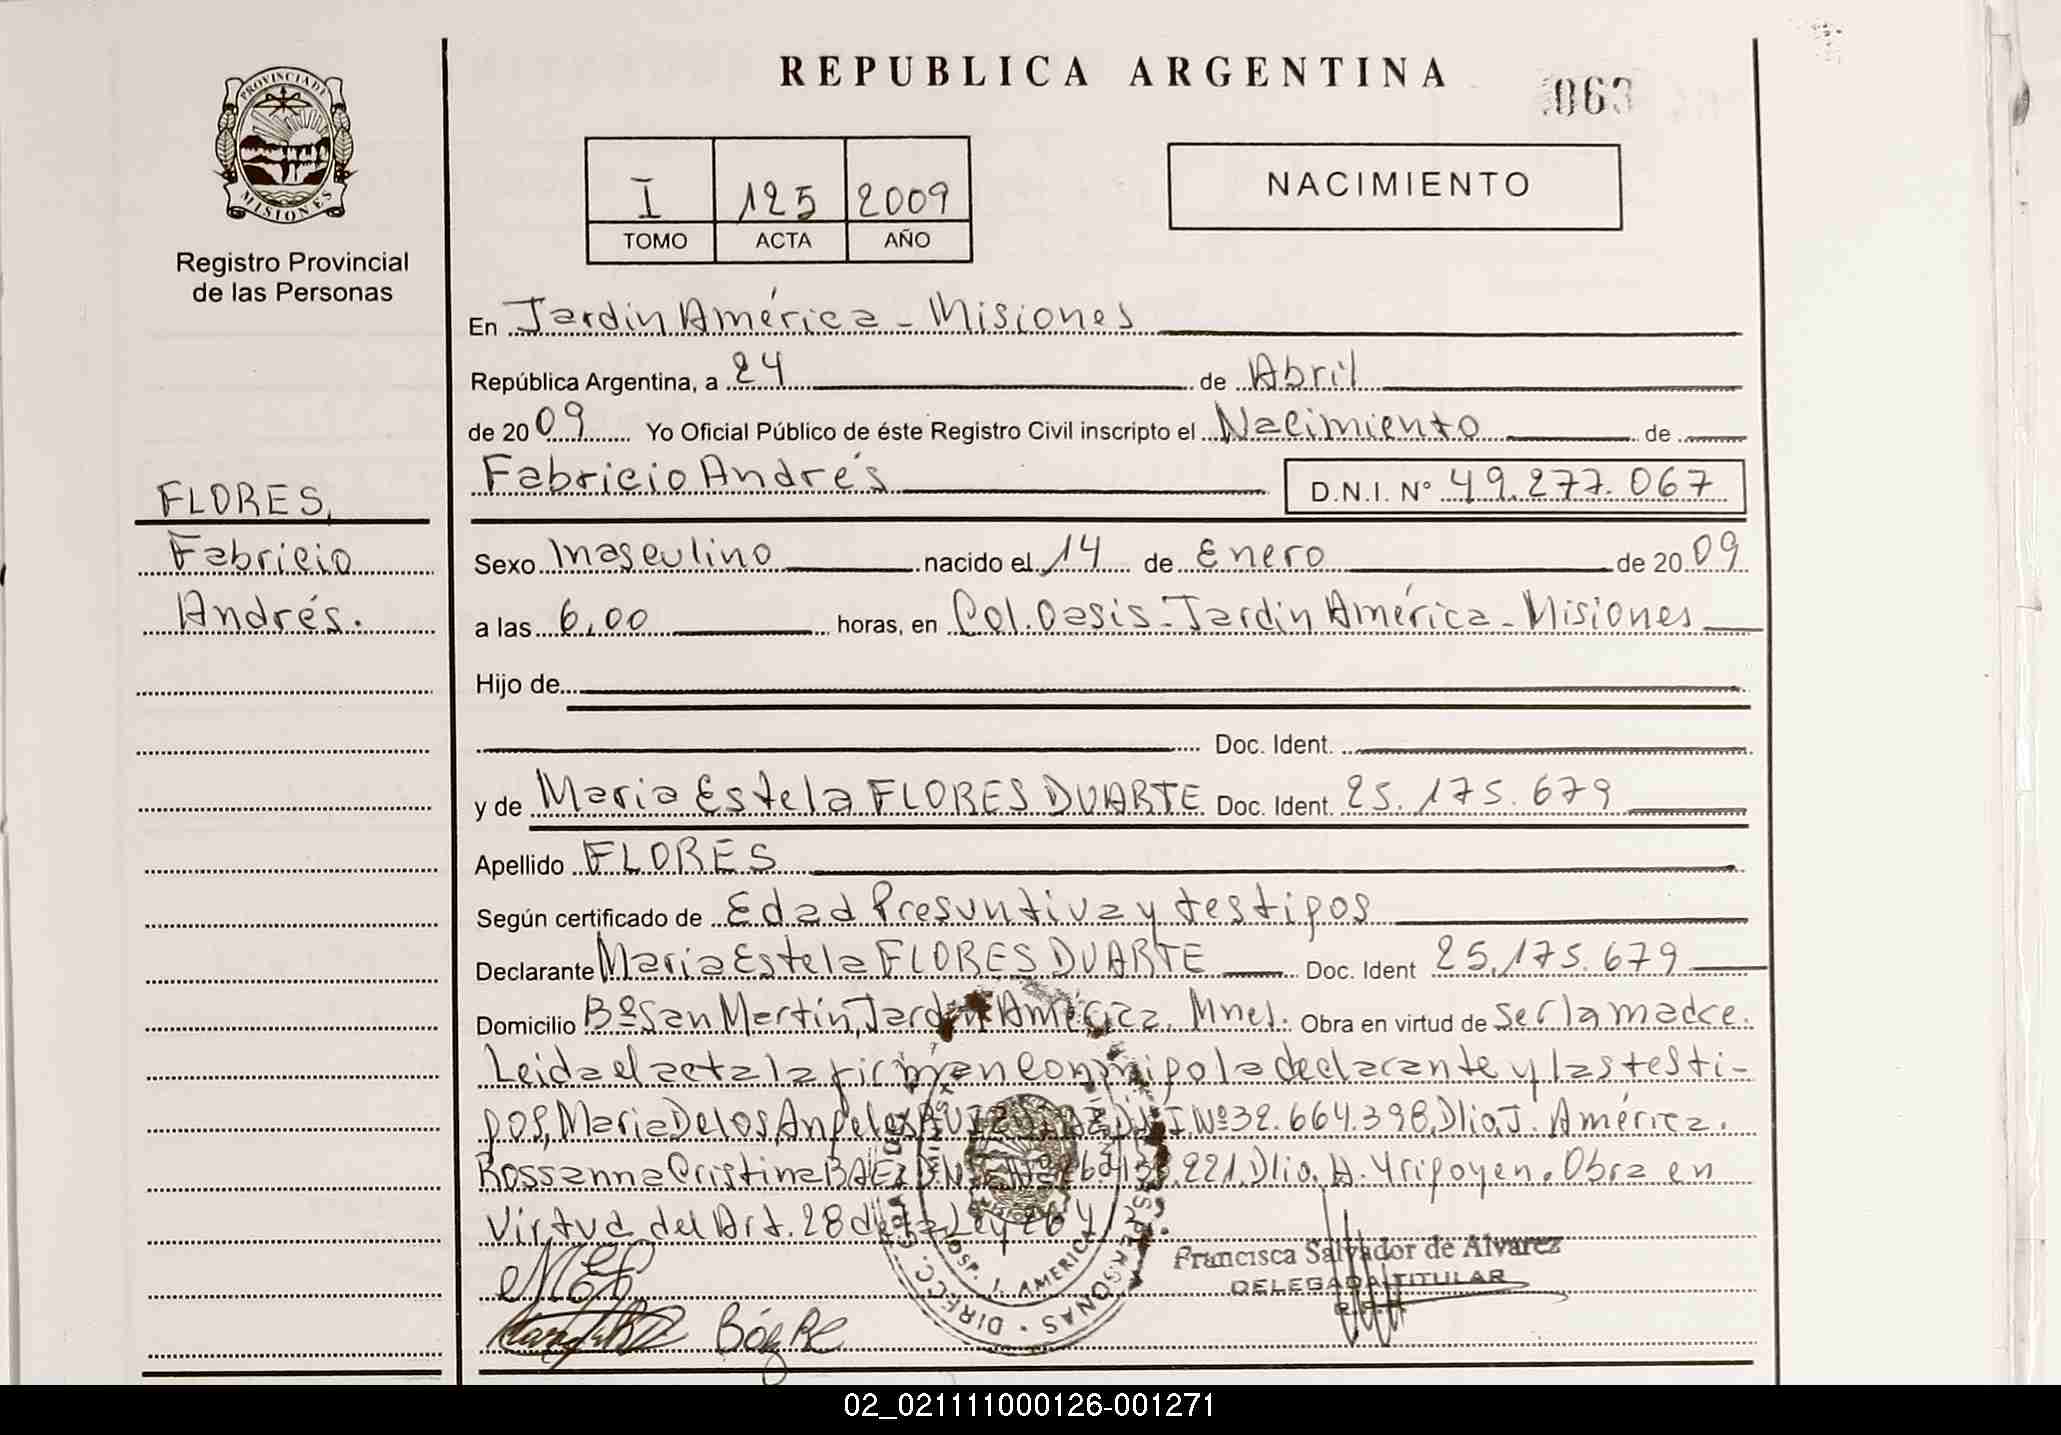 REPUBLICA ARGENTINA
063
PROVINCIA DE
MISIONES
Registro Provincial
de las Personas
I 125 2009
TOMO ACTA AÑO
NACIMIENTO
En Jardín América - Misiones
República Argentina, a 24 de Abril
de 2009 Yo Oficial Público de éste Registro Civil inscripto el Nacimiento de
Fabricio Andrés D.N.I. N° 49.277.067
FLORES,
Fabricio
Andrés.
Sexo Masculino nacido el 14 de Enero de 2009
a las 6,00 horas, en Col. Oasis - Jardín América - Misiones
Hijo de
Doc. Ident.
y de Maria Estela FLORES DUARTE Doc. Ident. 25.175.679
Apellido FLORES
Según certificado de Edad Presuntiva y testigos
Declarante Maria Estela FLORES DUARTE Doc. Ident 25.175.679
Domicilio Bº San Martín, Jardín América. Mnes. Obra en virtud de ser la madre.
Leida el acta la firman conmigo la declarante y las testi-
gos, Maria De los Angeles D.N.I Nº 32.664.398, Dlio J. América.
Rossanna Cristina BAEZ Dlio. H. Yrigoyen. Obra en
Virtud del Art. 28 de la Ley
Francisca Salvador de Alvarez
DELEGADA TITULAR
R.P.P.
HOSP. J. AMERICA
DIRECC. PERSONAS
Báez RC
02_021111000126-001271